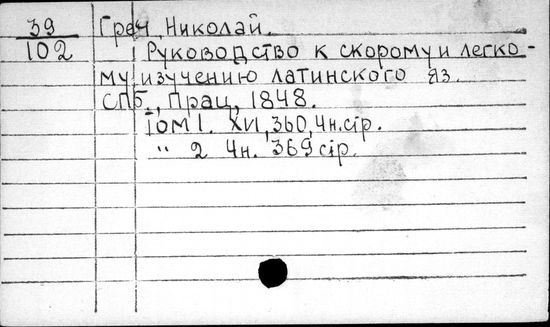 39 Греч, Николай.
102 Руководство к скорому и легко-
му изучению латинского яз.
СПб., Прац, 1848.
Том I. XVI, 360, 4н. стр.
" 2 4н. 369 стр.